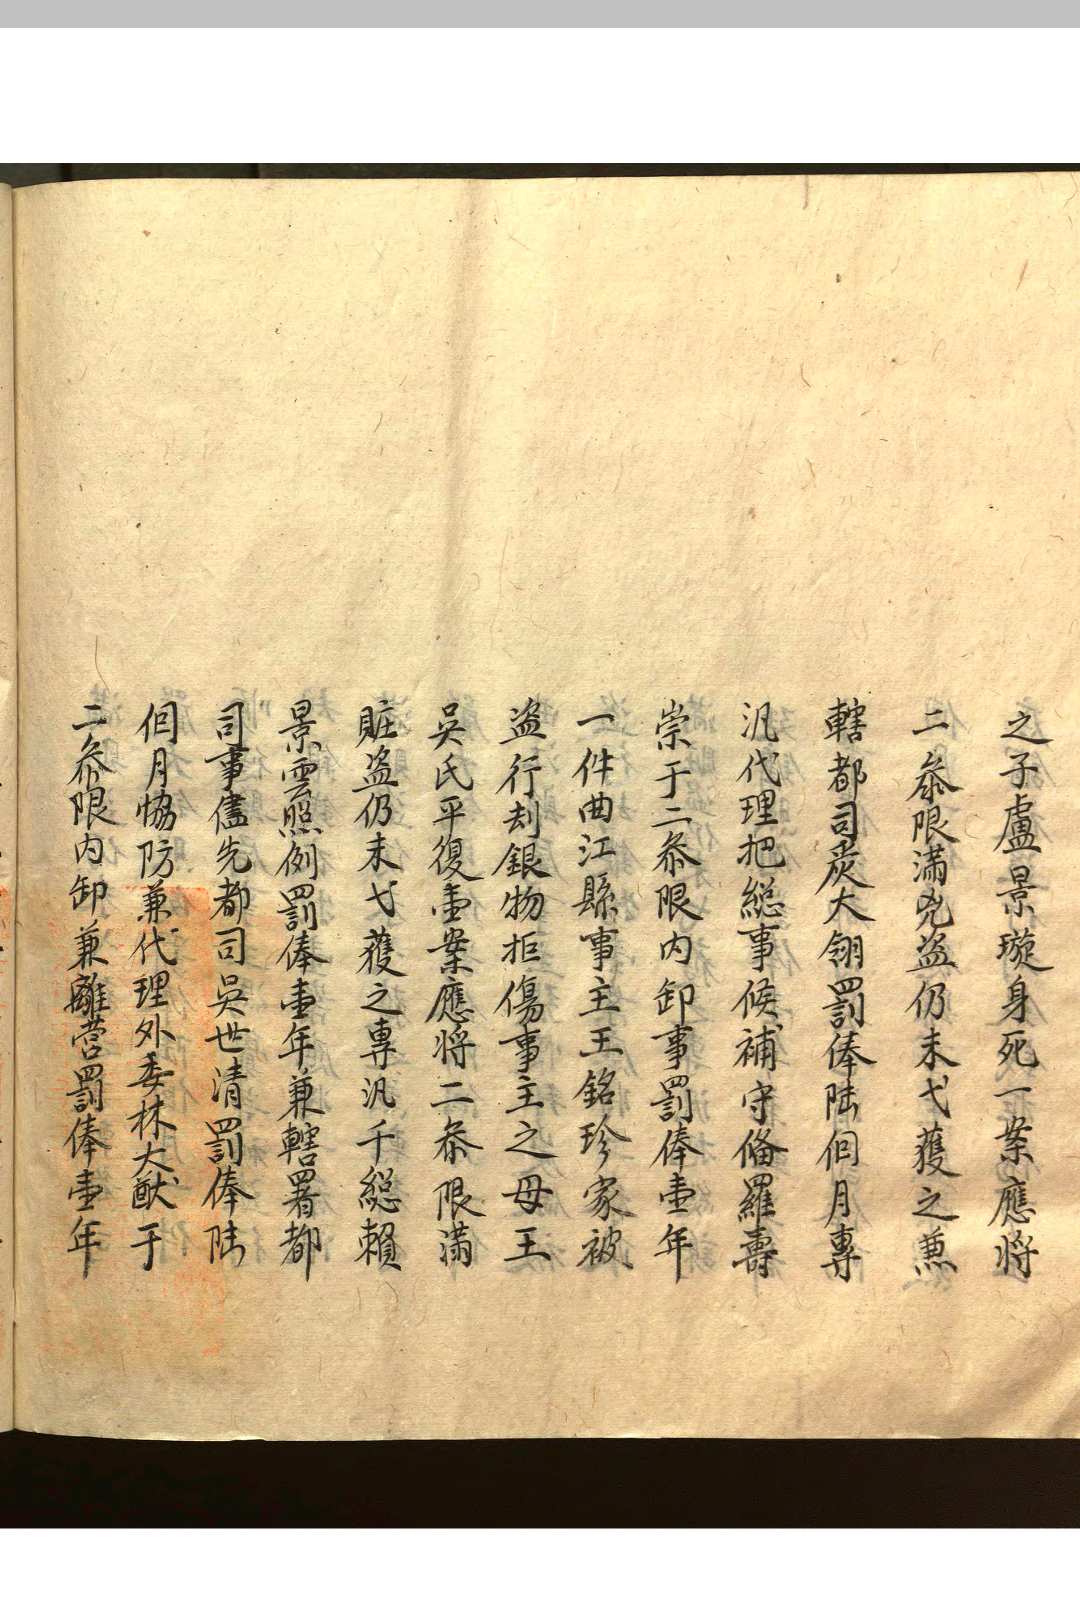 之子盧景璇身死一案應將
二叅限滿兇盜仍未弋獲之兼
轄都司炭大翎罰俸陸個月專
汛代理把總事候補守備羅壽
崇于二叅限內卸事罰俸壹年
一件曲江縣事主王銘珍家被
盜行刦銀物拒傷事主之母王
吳氏平復壹案應將二叅限滿
賍盜仍未弋獲之專汛千總賴
景雲照例罰俸壹年兼轄署都
司事儘先都司吳世清罰俸陸
個月協防兼代理外委林大猷于
二叅限內卸兼離營罰俸壹年